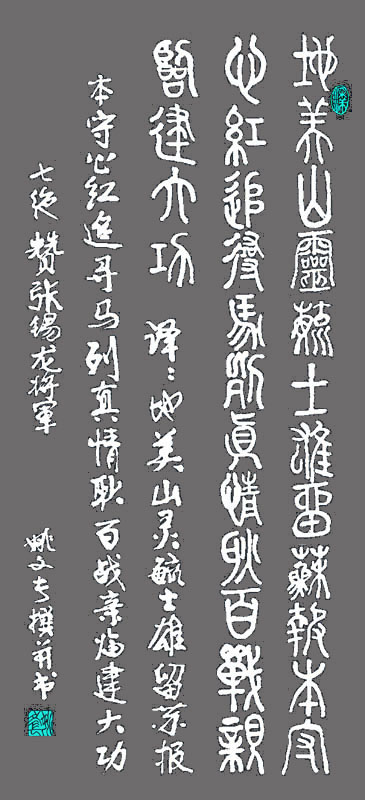 地美山靈毓士雄畱蘇報本守
心紅追尋馬列真情耿百戰親
臨建大功 译：地美山灵毓士雄留苏报
本守心红追寻马列真情耿百战亲临建大功
七绝 贊张锡龙将軍
姚文 撰并书